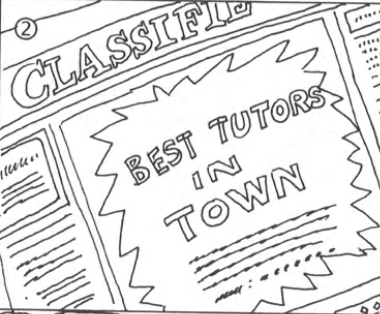 ②
CLASSIFIE
BEST TUTORS
IN
TOWN